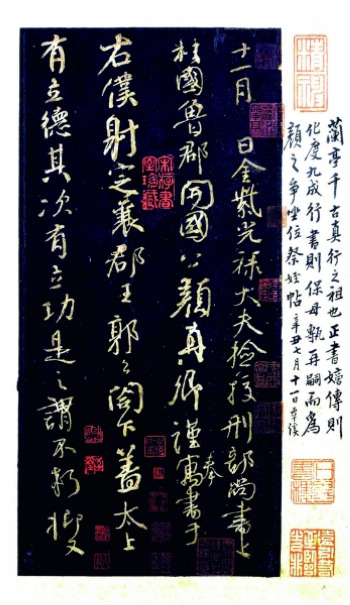 蘭亭千古真行之祖也正書嫡傳則
化度九成行書則保母甎再嗣而為
顏之爭坐位祭姪帖 辛丑七月十一日
十一月 日金紫光祿大夫撿挍刑部尚書上
柱國魯郡開國公顏真卿謹奉寓書于
右僕射定襄郡王郭公閣下蓋太上
有立德其次有立功是之謂不朽抑又